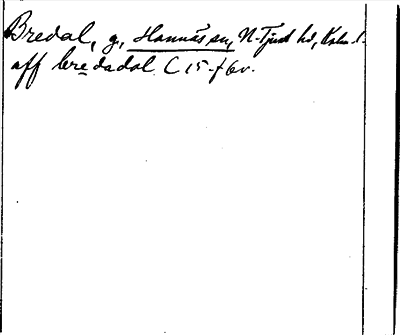 Bredal, g, Hannäs sn, N. Tjust hd, Kalm. l.
aff bredadal C 15 f 6v.